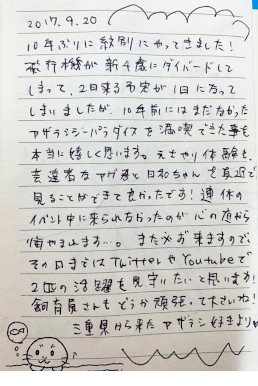 2017.9.20
10年ぶりに紋別にやってきました!
飛行機が新千歳にダイバードして
しまって、2日来る予定が1日になって
しまいましたが、10年前にはまだなかった
アザラシシーパラダイスを満喫できた事を
本当に嬉しく思います。えさやり体験も、
芸達者なアグ君と日和ちゃんを真近で
見ることができて良かったです!連休の
イベント中に来られなかったのが心の底から
悔やまれます…。また必ず来ますので、
その日まではTwitterやYoutubeで
2匹の活躍を見守りたいと思います!
飼育員さんもどうか頑張って下さいね!
三重県から来たアザラシ好きより♥